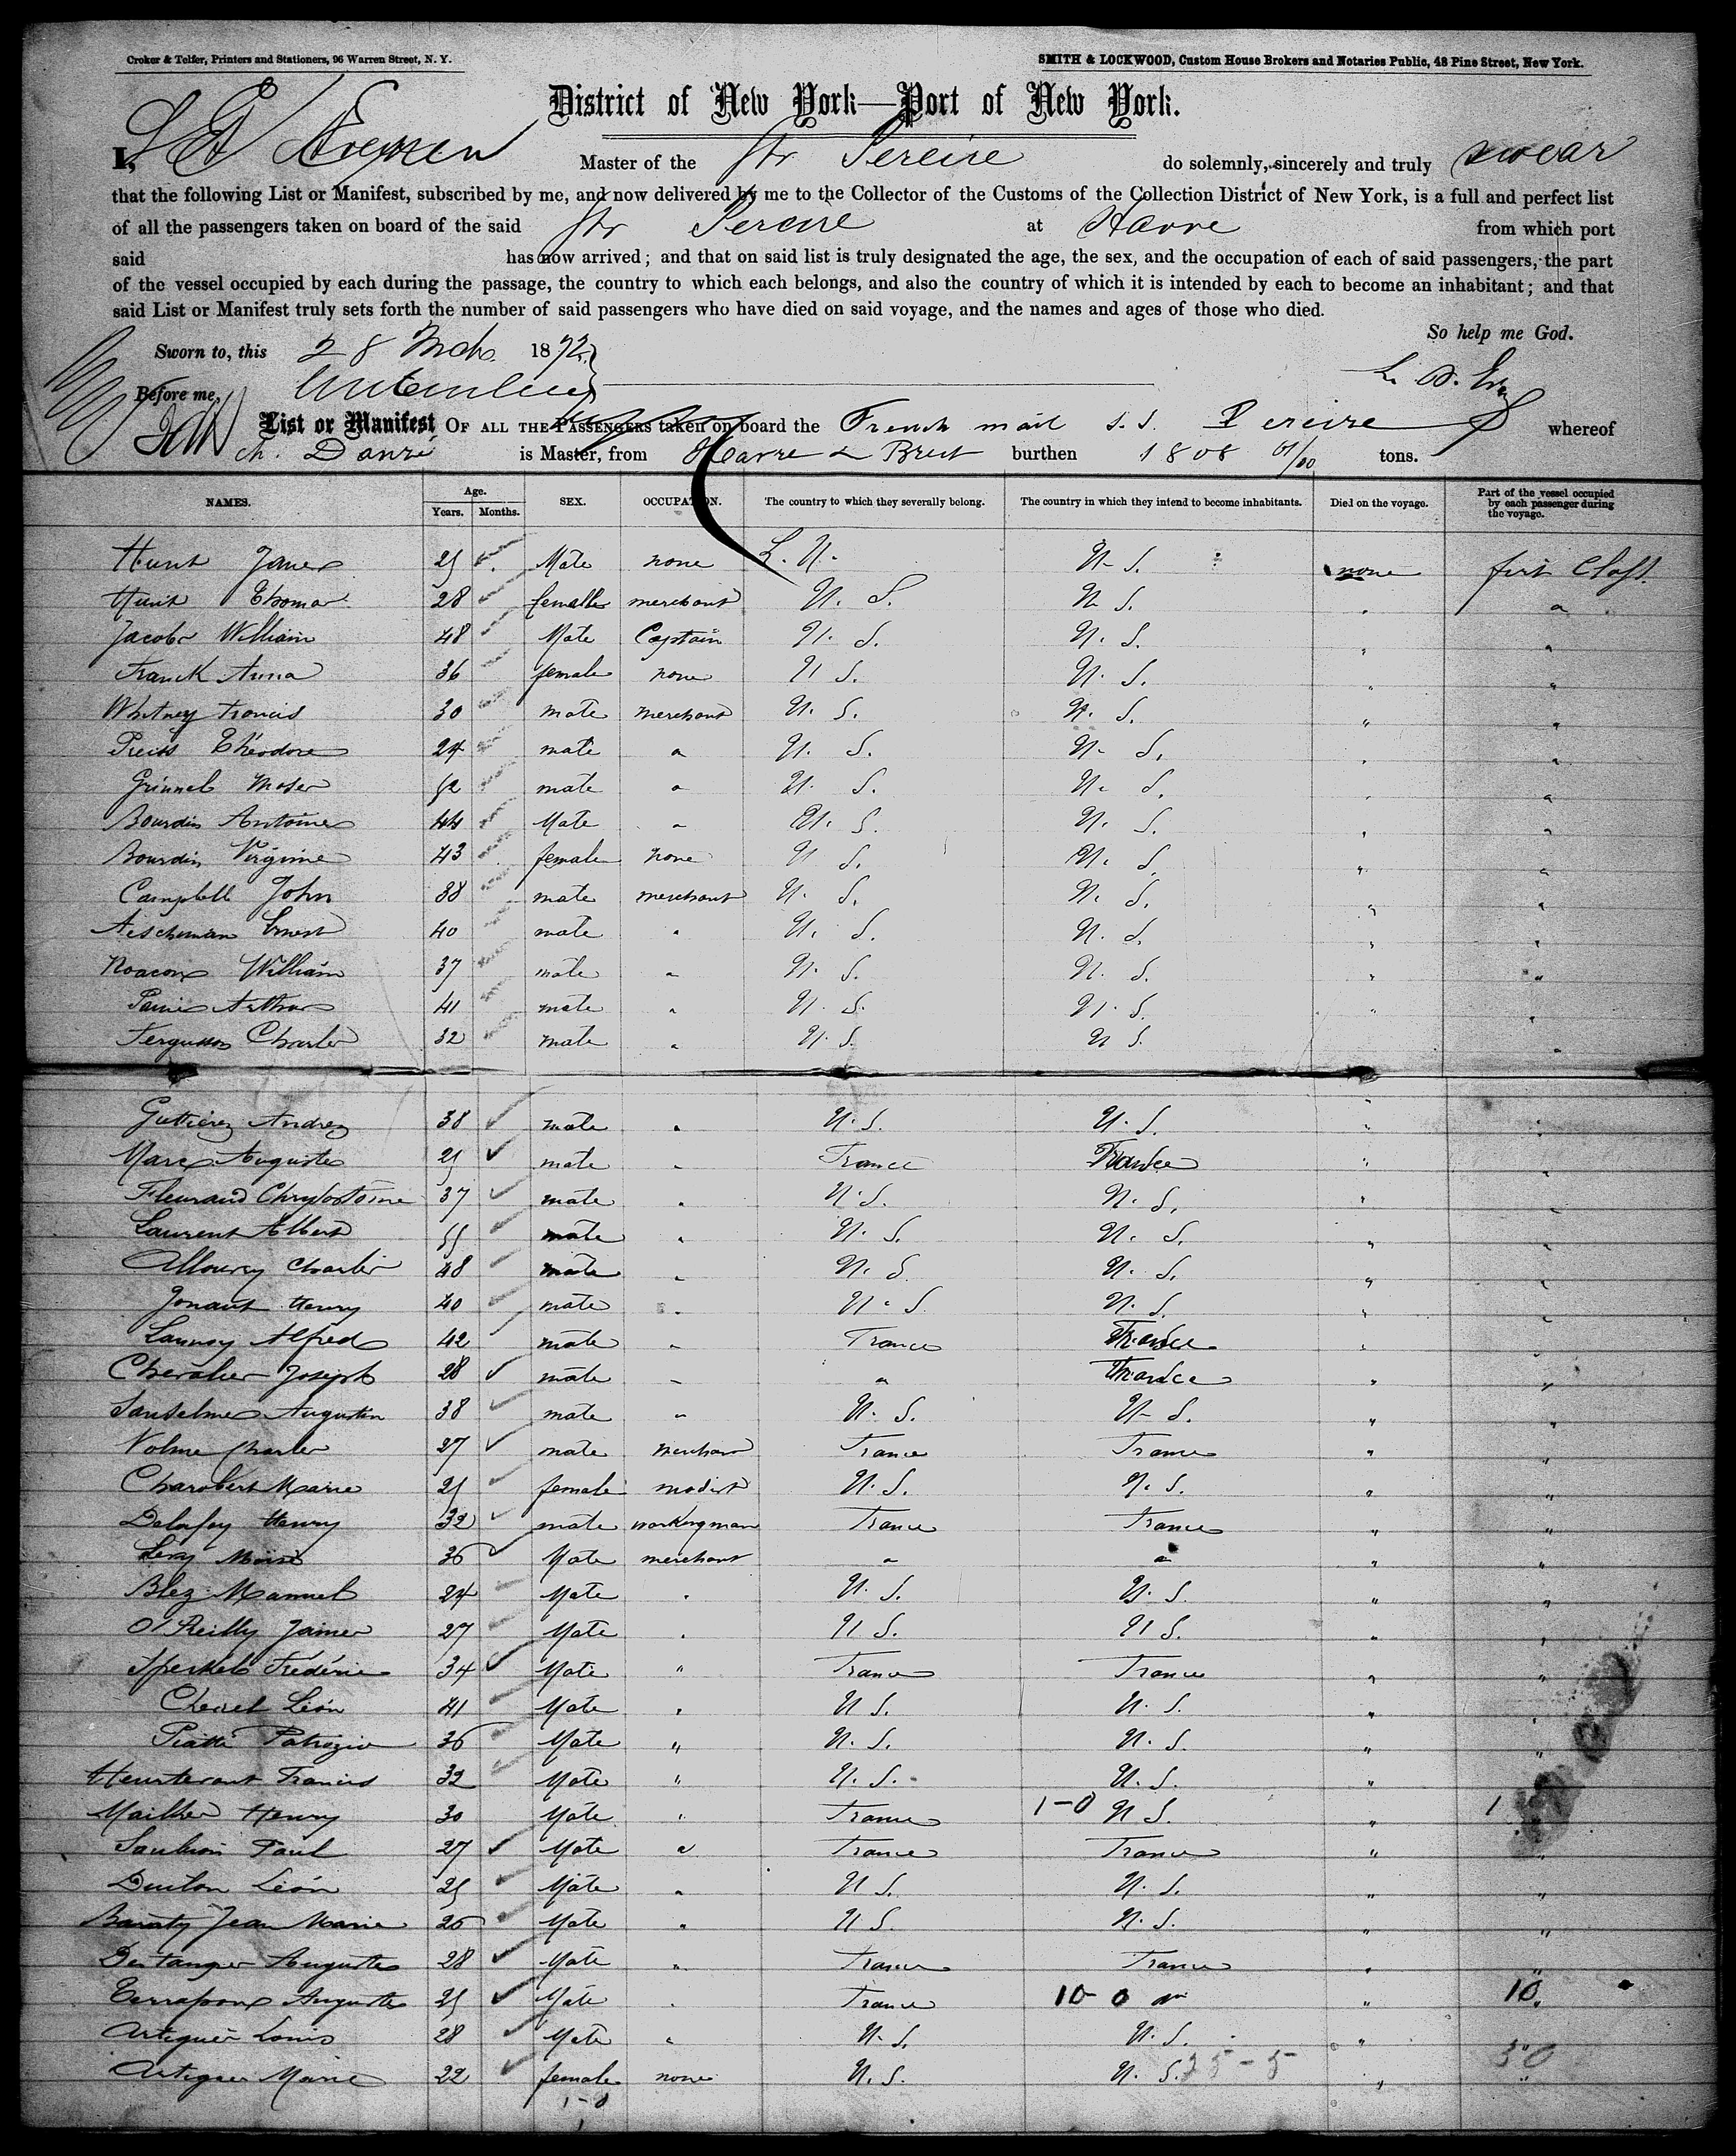 Croker & Telfer, Printers and Stationers, 96 Warren Street, N. Y. SMITH & LOCKWOOD, Custom House Brokers and Notaries Public, 48 Pine Street, New York.
District of New York—Port of New York.
I, Master of the Str Pereire do solemnly, sincerely and truly swear
that the following List or Manifest, subscribed by me, and now delivered by me to the Collector of the Customs of the Collection District of New York, is a full and perfect list
of all the passengers taken on board of the said Str Pereire at Havre from which port
said has now arrived; and that on said list is truly designated the age, the sex, and the occupation of each of said passengers, the part
of the vessel occupied by each during the passage, the country to which each belongs, and also the country of which it is intended by each to become an inhabitant; and that
said List or Manifest truly sets forth the number of said passengers who have died on said voyage, and the names and ages of those who died.
So help me God.
Sworn to, this 28 Mch. 1872
Before me,
List or Manifest OF ALL THE PASSENGERS taken on board the French mail s.s. Pereire whereof
ch. Danré is Master, from Havre & Brest burthen 1808 01/00 tons.
NAMES. Age. Years. Months. SEX. OCCUPATION. The country to which they severally belong. The country in which they intend to become inhabitants. Died on the voyage. Part of the vessel occupied by each passenger during the voyage.
Hunt James 25 Male none U. U. S. none first Class
Hunt Thomas 28 female merchant U. S. U. S. "
Jacobs William 48 Male Captain U. S. U. S. " "
Franck Anna 36 female none U. S. U. S. " "
Whitney Francis 30 male merchant U. S. U. S. " "
Theodore 24 male " U. S. U. S. " "
Grinnel Moses 52 male " U. S. U. S. " "
Bourdin Antoine 44 Male " U. S. U. S. " "
Bourdin Virginie 43 female none U. S. U. S. " "
Campbell John 38 male merchant U. S. U. S. " "
Aeschiman Ernest 40 male " U. S. U. S. " "
William 37 male " U. S. U. S. " "
Arthur 41 male " U. S. U. S. " "
Fergusson Charles 32 male " U. S. U. S. "
Guttierez Andrez 38 male " U. S. U. S. " "
Marc Auguste 25 male " France France " "
Fleuraud Chrysostome 37 male " U. S. U. S. " "
Laurent Albert 55 male " U. S. U. S. " "
Alloury Charles 48 male " U. S. U. S. " "
Jonaut Henry 40 male " U. S. U. S. " "
Launay Alfred 42 male " France France " "
Chevalier Joseph 28 male " " France " "
Sanselme Augustin 38 male " U. S. U. S. " "
Volme Charles 27 male merchant France France " "
Charobert Marie 25 female modist U. S. U. S. " "
Delafoy Henry 32 male workingman France France " "
Levy Moise 36 Male merchant " " " "
Blez Manuel 24 Male " U. S. U. S. " "
O'Reilly James 27 Male " U. S. U. S. " "
Frédéric 34 Male " France France " "
Léon 41 Male " U. S. U. S. " "
Piatti Patrizio 36 Male " U. S. U. S. " "
Francis 32 Male " U. S. U. S. "
Henry 30 Male " France 1-0 U. S. " 1
Paul 27 Male " France France " "
Léon 25 Male " U. S. U. S. " "
Baraty Jean Marie 26 Male " U. S. U. S. " "
Auguste 28 Male " France France " "
Auguste 25 Male " France 10-0 " 10
Artigues Louis 28 Male " U. S. U. S. "
Artigues Marie 22 female none U. S. U. S. 25-5 " 30
1-0